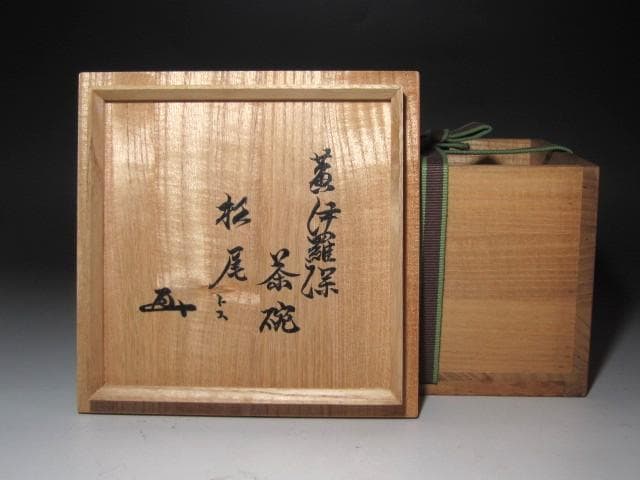 黄伊羅保
茶碗
松尾トス